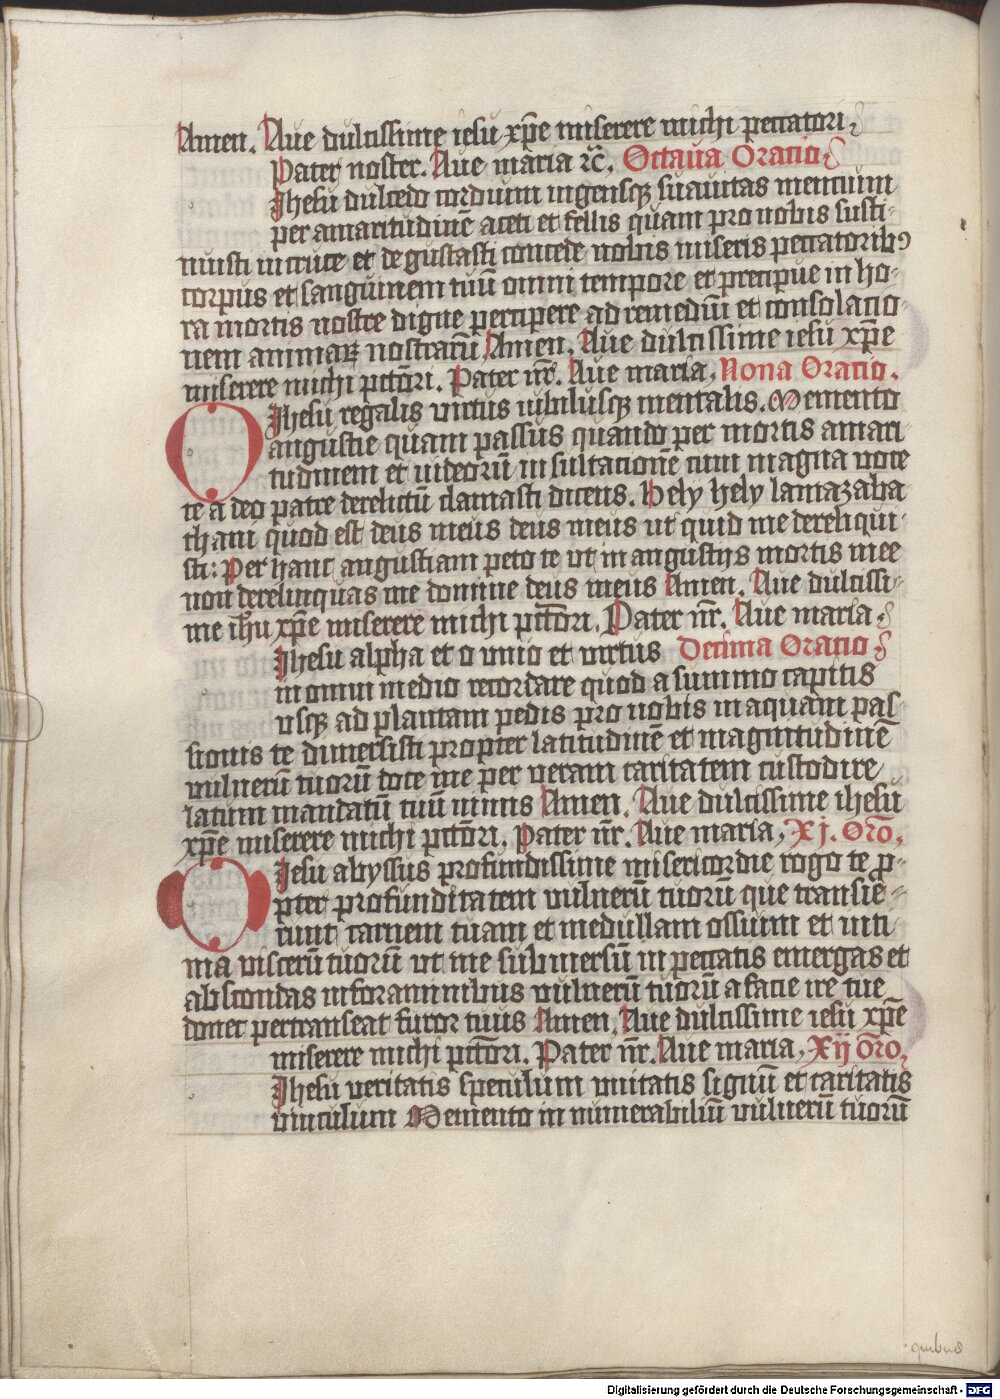 Amen. Aue dulcissime iesu xp̄e miserere michi peccatori
Pater noster. Aue maria ⁊c̄. Octaua Oratio
Jhesu dulcedo cordium ingensqꝫ suauitas mentium
per amaritudinē aceti et fellis quam pro nobis susti-
nuisti in cruce et degustasti concede nobis miseris peccatoribꝰ
corpus et sanguinem tuū omni tempore et precipue in ho-
ra mortis nostre digne percipere ad remediū et consolacio-
nem animaꝝ nostrarū Amen. Aue dulcissime iesu xp̄e
miserere michi pctōri. Pater nr̄. Aue maria. Nona Oratio.
O Jhesu regalis virtus iubilusqꝫ mentalis. Memento
angustie quam passus quando per mortis amari
tudinem et iudeorū insultacionē cum magna voce
te a deo patre derelictū clamasti dicens. Hely hely lamazaba
thani quod est deus meus deus meus ut quid me dereliqui-
sti: Per hanc angustiam peto te vt in angustijs mortis mee
non derelinquas me domine deus meus Amen. Aue dulcissi-
me ih̄u xp̄e miserere michi pctōri. Pater nr̄. Aue maria.
Jhesu alpha et o unio et virtus Decima Oratio
in omni medio recordare quod a summo capitis
usqꝫ ad plantam pedis pro nobis in aquam pas
sionis te dimersisti propter latitudinē et magnitudinē
vulnerū tuorū doce me per veram caritatem custodire
latum mandatū tuū nimis Amen. Aue dulcissime ihesu
xp̄e miserere michi pctōri. Pater nr̄. Aue maria. Xj. Orō.
O Jesu abyssus profundissime misericordie rogo te ꝓ-
pter profunditatem vulnerū tuorū que transie-
runt carnem tuam et medullam ossium et inti
ma viscerū tuorū vt me submersū in peccatis emergas et
abscondas in foraminibus vulnerū tuorū a facie ire tue
donec pertranseat furor tuus Amen. Aue dulcissime iesu xp̄e
miserere michi pctōri. Pater nr̄. Aue maria. Xij Orō.
Jhesu veritatis speculum unitatis signū et caritatis
vinculum Memento innumerabiliū vulnerū tuorū
quibus
Digitalisierung gefördert durch die Deutsche Forschungsgemeinschaft - DFG